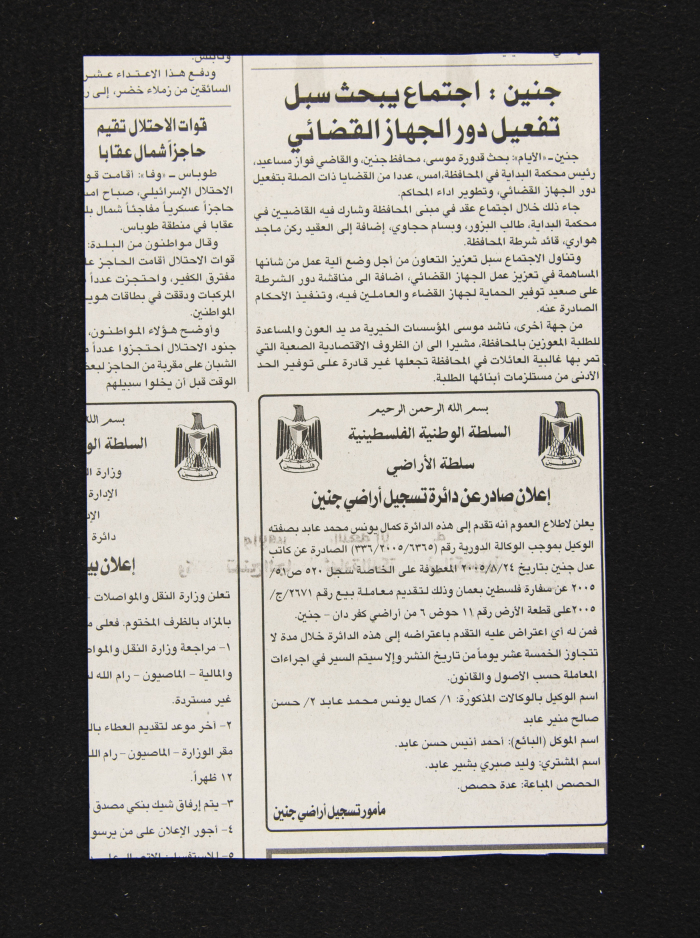 جنين : اجتماع يبحث سبل
تفعيل دور الجهاز القضائي
جنين ـ «الأيام»: بحث قدورة موسى، محافظ جنين، والقاضي فواز مساعيد،
رئيس محكمة البداية في المحافظة،امس، عددا من القضايا ذات الصلة بتفعيل
دور الجهاز القضائي، وتطوير اداء المحاكم.
جاء ذلك خلال اجتماع عقد في مبنى المحافظة وشارك فيه القاضيين في
محكمة البداية، طالب البزور، وبسام حجاوي، إضافة إلى العقيد ركن ماجد
هواري، قائد شرطة المحافظة.
وتناول الاجتماع سبل تعزيز التعاون من أجل وضع آلية عمل من شانها
المساهمة في تعزيز عمل الجهاز القضائي، اضافة الى مناقشة دور الشرطة
على صعيد توفير الحماية لجهاز القضاء والعاملين فيه، وتنفيذ الأحكام
الصادرة عنه.
من جهة أخرى، ناشد موسى المؤسسات الخيرية مد يد العون والمساعدة
للطلبة المعوزين بالمحافظة، مشيرا الى ان الظروف الاقتصادية الصعبة التي
تمر بها غالبية العائلات في المحافظة تجعلها غير قادرة على توفير الحد
الأدنى من مستلزمات أبنائها الطلبة.
بسم الله الرحمن الرحيم
السلطة الوطنية الفلسطينية
سلطة الأراضي
فلسطين
فلسطين
إعلان صادر عن دائرة تسجيل أراضي جنين
يعلن لاطلاع العموم أنه تقدم إلى هذه الدائرة كمال يونس محمد عابد بصفته
الوكيل بموجب الوكالة الدورية رقم (٣٣٦/٢٠٠٥/٦٣٦٥) الصادرة عن كاتب
عدل جنين بتاريخ ٢٠٠٥/٨/٢٤ المعطوفة على الخاصة سجل ٥٢٠ ص٥١/
٢٠٠٥ عن سفارة فلسطين بعمان وذلك لتقديم معاملة بيع رقم ٢٦٧١/ج/
٢٠٠٥على قطعة الأرض رقم ١١ حوض ٦ من أراضي كفر دان – جنين.
فمن له أي اعتراض عليه التقدم باعتراضه إلى هذه الدائرة خلال مدة لا
تتجاوز الخمسة عشر يوماً من تاريخ النشر وإلا سيتم السير في اجراءات
المعاملة حسب الأصول والقانون.
اسم الوكيل بالوكالات المذكورة: ١/ كمال يونس محمد عابد ٢/ حسن
صالح منير عابد
اسم الموكل (البائع): أحمد أنيس حسن عابد.
اسم المشتري: وليد صبري بشير عابد.
الحصص المباعة: عدة حصص.
مأمور تسجيل أراضي جنين
ودفع هذا الاعتداء عشر
السائقين من زملاء خضر، إلى
قوات الاحتلال تقيم
حاجزاً شمال عقابا
طوباس ـ «وفا»: أقامت
الاحتلال الإسرائيلي، صباح
حاجزاً عسكرياً مفاجئاً شمال
عقابا في منطقة طوباس.
وقال مواطنون من البلدة:
قوات الاحتلال أقامت الحاجز
مفترق الكفير، واحتجزت عدداً
المركبات ودققت في بطاقات
المواطنين.
وأوضح هؤلاء المواطنون،
جنود الاحتلال احتجزوا عدداً
الشبان على مقربة من الحاجز
الوقت قبل أن يخلوا سبيلهم
بسم
السلطة
وزارة
الإدارة
دائرة
فلسطين
إعلان
تعلن وزارة النقل والمواصلات -
بالمزاد بالظرف المختوم. فعلى
١- مراجعة وزارة النقل
والمالية - الماصيون - رام الله
غير مستردة.
٢- آخر موعد لتقديم العطاء
مقر الوزارة - الماصيون - رام
١٢ ظهراً.
٣- يتم إرفاق شيك بنكي مصدق
٤- أجور الإعلان على من